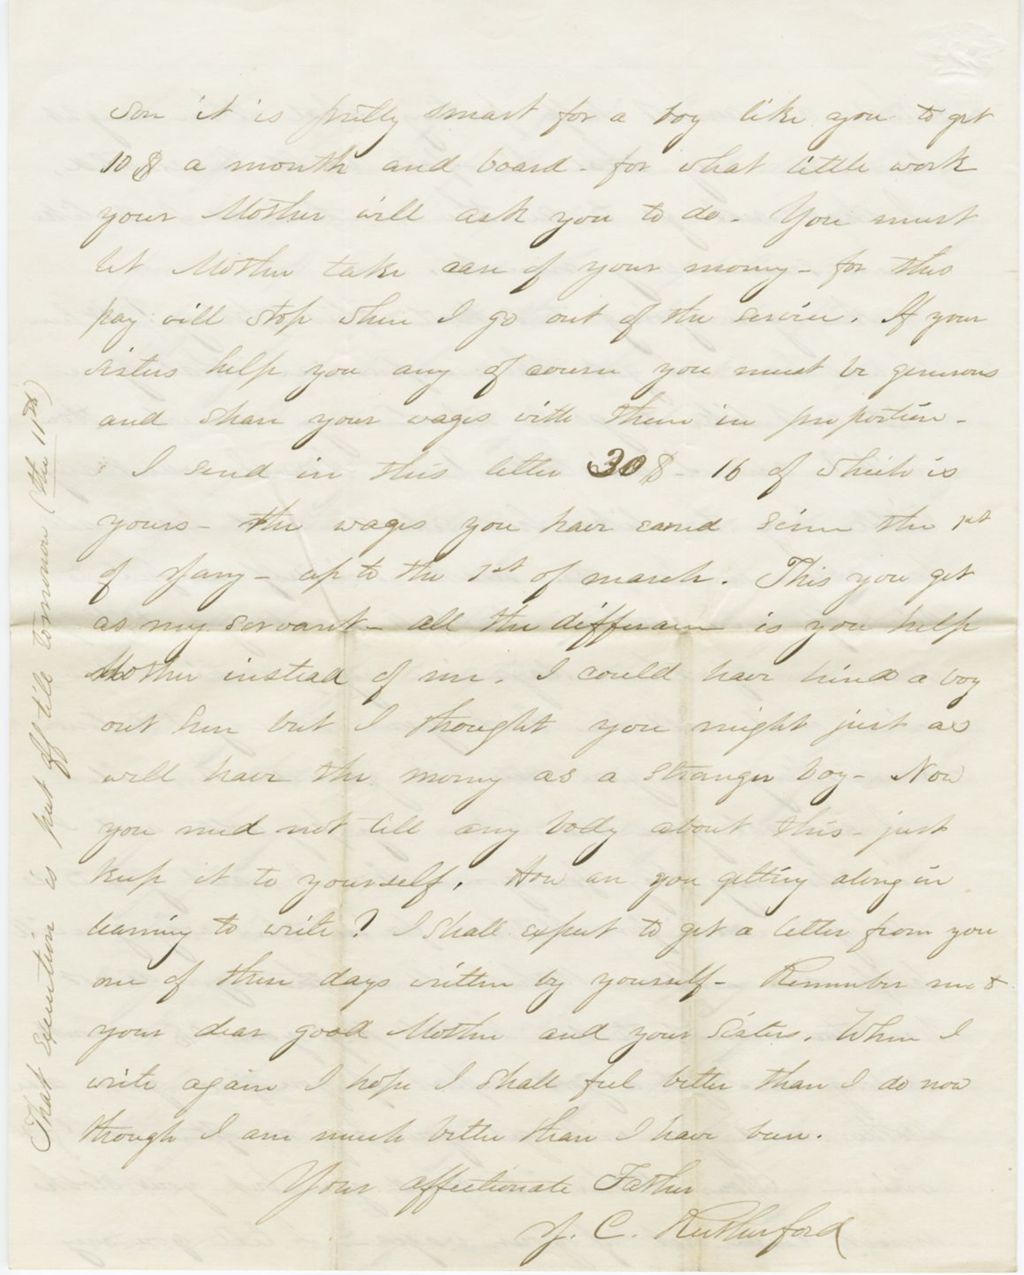 Son it is pretty smart for a boy like you to get
10$ a month and board - for what little work
your Mother will ask you to do - You must
let Mother take care of your money - for this
pay will stop when I go out of the service. If your
sisters help you any of course you must be generous
and share your wages with them in proportion -
I send in this letter 30$ - 16 of which is
yours - the wages you have earned since the 1st
of Jany - up to the 1st of march. This you get
as my servant - all the differance is you help
Mother instead of me. I could have hired a boy
out here but I thought you might just as
well have the money as a stranger boy - Now
you need not tell any body about this - just
keep it to yourself. How are you getting along in
learning to write? I shall expect to get a letter from you
one of these days written by yourself - Remember me &
your dear good Mother and your Sisters. When I
write again I hope I shall feel better than I do now
though I am much better than I have been.
Your affectionate Father
J. C. Rutherford
That execution is put off till tomorrow (the 11th)